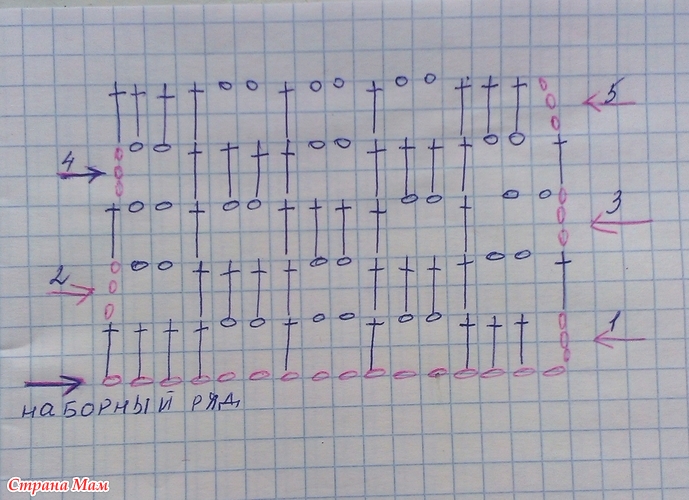 5
4
3
2
1
НАБОРНЫЙ РЯД
Страна Мам